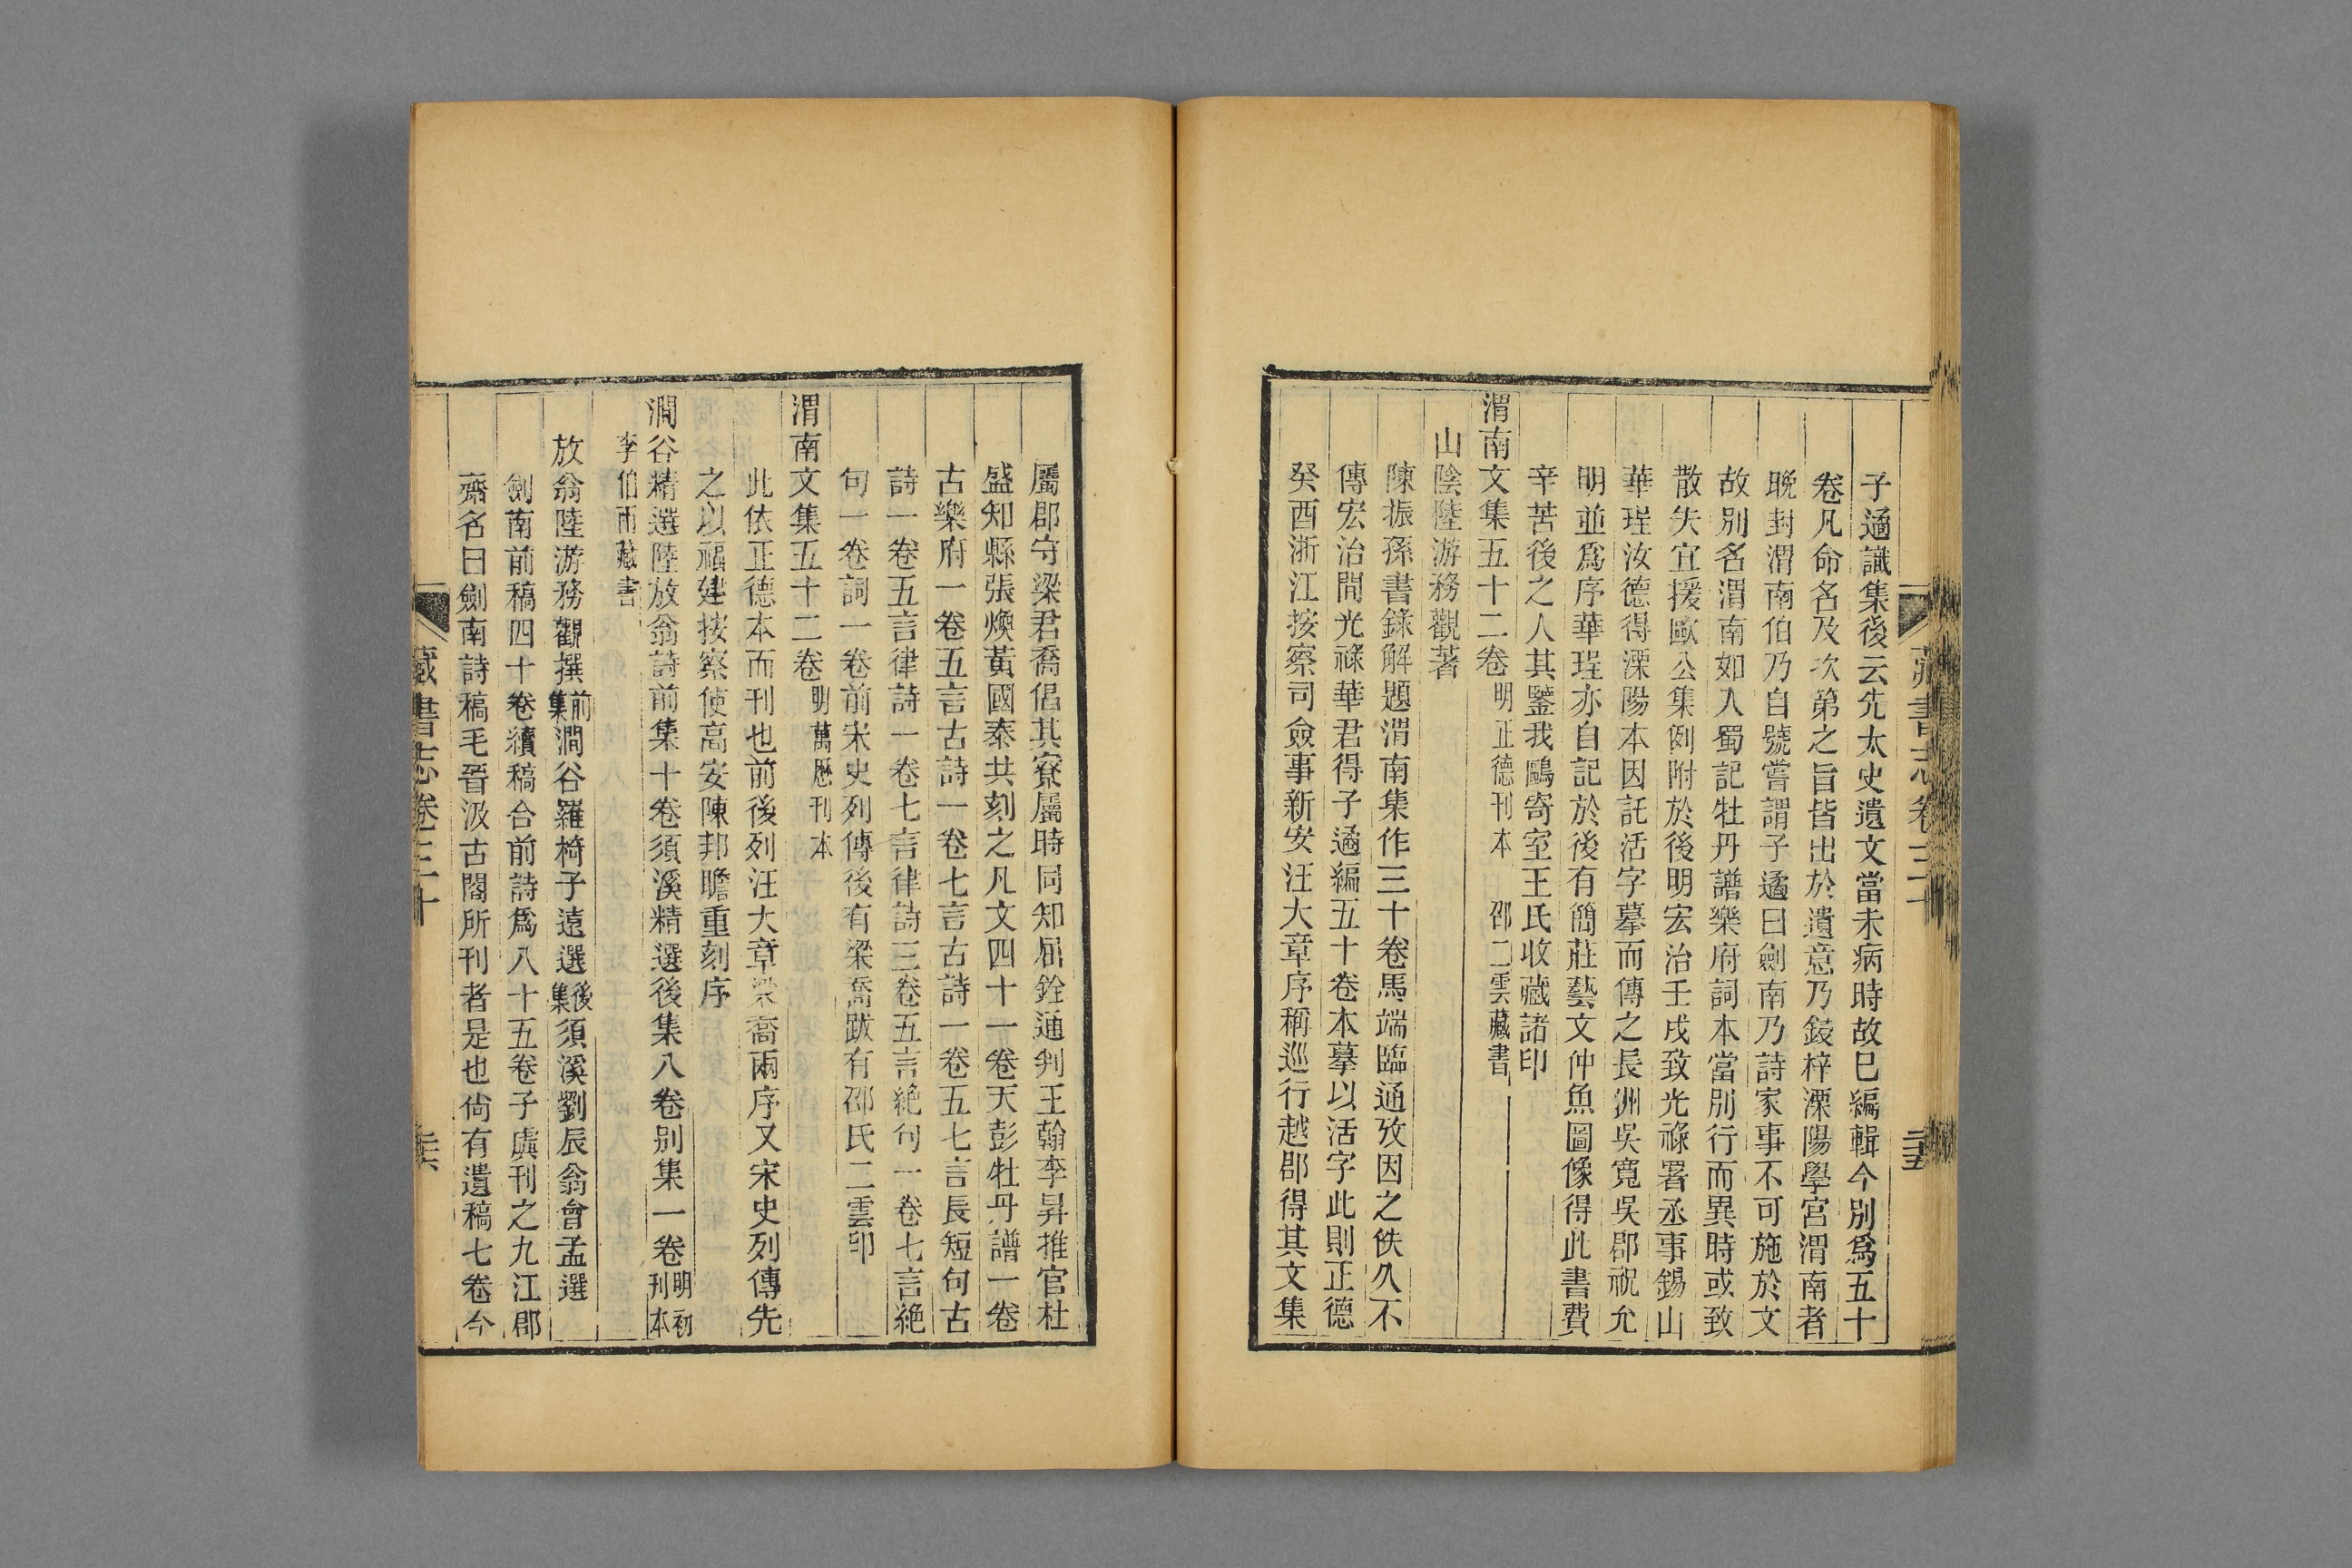 藏書志卷三十
二十五
子遹識集後云先太史遺文當未病時故已編輯今別爲五十
卷凡命名及次第之旨皆出於遺意乃鋟梓溧陽學宮渭南者
晚封渭南伯乃自號嘗謂子遹曰劍南乃詩家事不可施於文
故別名渭南如入蜀記牡丹譜樂府詞本當別行而異時或致
散失宜援歐公集例附於後明宏治壬戌致光祿署丞事錫山
華珵汝德得溧陽本因託活字摹而傳之長洲吳寬吳郡祝允
明並爲序華珵亦自記於後有簡莊藝文仲魚圖像得此書費
辛苦後之人其鑒我鷗寄室王氏收藏諸印
渭南文集五十二卷 明正德刊本 邵二雲藏書
山陰陸游務觀著
陳振孫書錄解題渭南集作三十卷馬端臨通攷因之佚久不
傳宏治間光祿華君得子遹編五十卷本摹以活字此則正德
癸酉浙江按察司僉事新安汪大章序稱巡行越郡得其文集
屬郡守梁君喬倡其寮屬時同知屈銓通判王翰李昇推官杜
盛知縣張煥黃國泰共刻之凡文四十一卷天彭牡丹譜一卷
古樂府一卷五言古詩一卷七言古詩一卷五七言長短句古
詩一卷五言律詩一卷七言律詩三卷五言絕句一卷七言絕
句一卷詞一卷前宋史列傳後有梁喬跋有邵氏二雲印
渭南文集五十二卷 明萬歷刊本
此依正德本而刊也前後列汪大章梁喬兩序又宋史列傳先
之以福建按察使高安陳邦瞻重刻序
澗谷精選陸放翁詩前集十卷須溪精選後集八卷別集一卷 明初刊本
李伯雨藏書
放翁陸游務觀撰 前集 澗谷羅椅子遠選 後集 須溪劉辰翁會孟選
劍南前稿四十卷續稿合前詩爲八十五卷子虡刊之九江郡
齋名曰劍南詩稿毛晉汲古閣所刊者是也尙有遺稿七卷今
藏書志卷三十
二十六